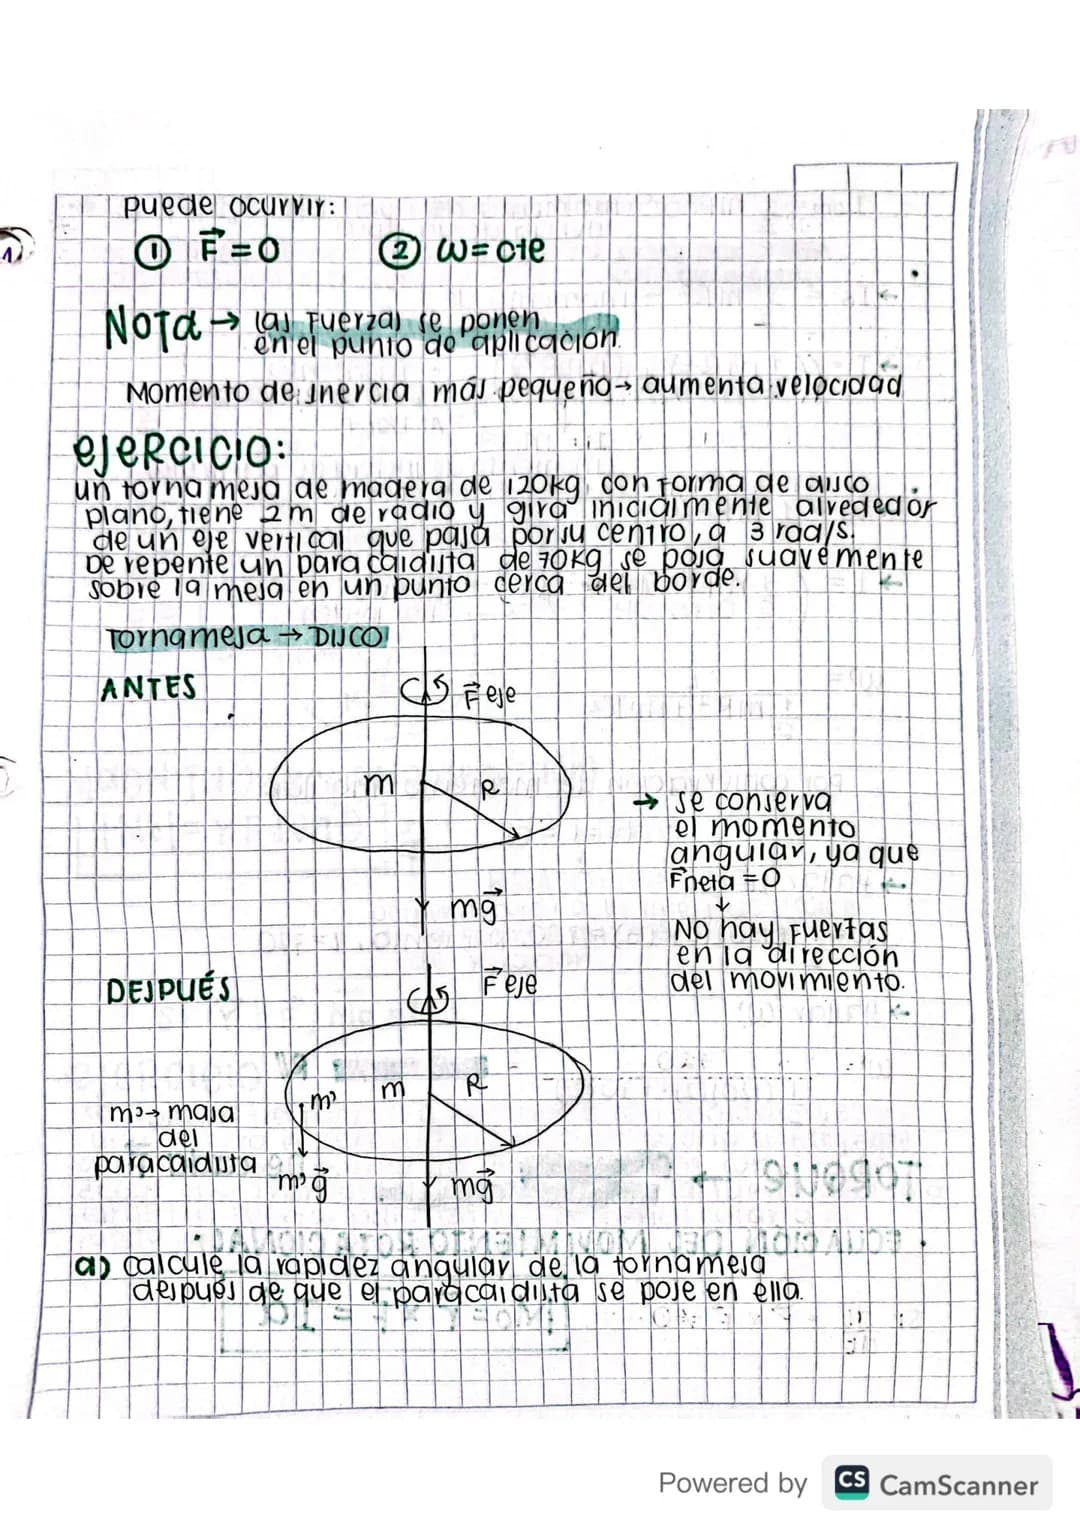 puede ocurrir:
① F⃗ = 0 ② ω = cte
Nota → las fuerzas se ponen
en el punto de aplicación.
Momento de inercia más pequeño → aumenta velocidad
ejercicio:
un tornamesa de madera de 120kg con forma de disco
plano, tiene 2m de radio y gira inicialmente alrededor
de un eje vertical que pasa por su centro, a 3 rad/s.
De repente un paracaidista de 70kg se posa suavemente
sobre la mesa en un punto cerca del borde.
Tornamesa → DISCO
ANTES
F⃗ eje
m R
→ se conserva
el momento
angular, ya que
F⃗neta = 0
↓
mg⃗
No hay fuerzas
en la dirección
del movimiento.
DESPUÉS
F⃗ eje
m' m R
m' → masa
del
paracaidista
m'g⃗ mg⃗
a) calcule la rapidez angular de la tornamesa
después de que el paracaidista se pose en ella.
Powered by CS CamScanner